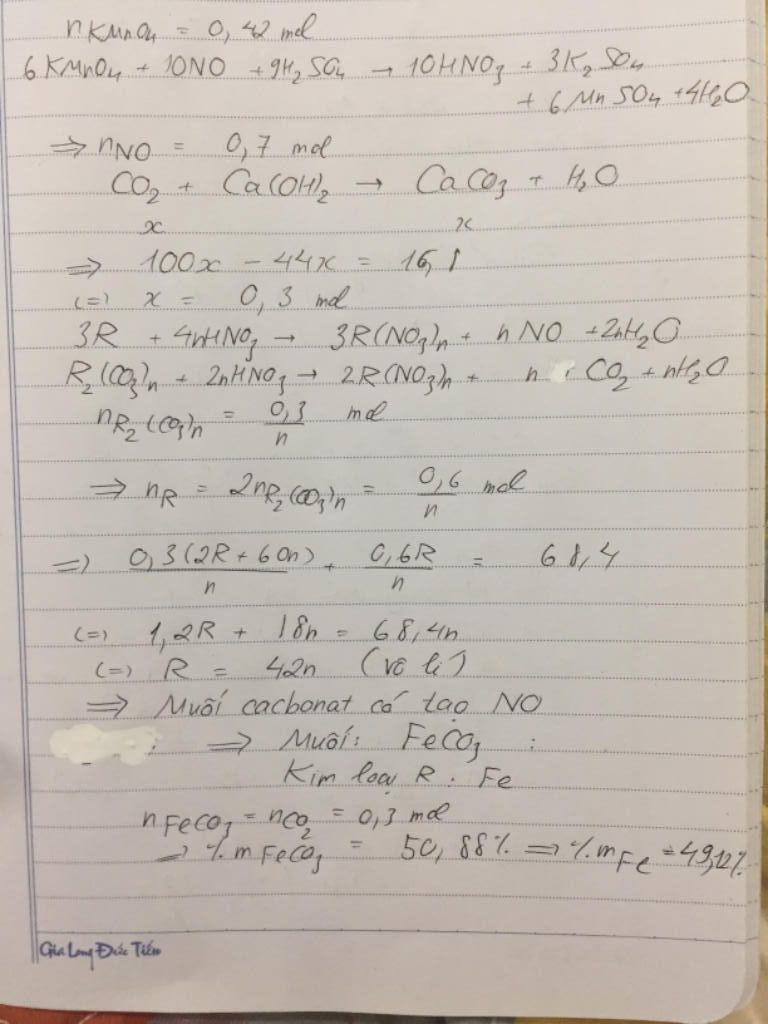 nKMnO4 = 0,42 mol
6KMnO4 + 10NO + 9H2SO4 → 10HNO3 + 3K2SO4
+ 6MnSO4 + 4H2O
⇒ nNO = 0,7 mol
CO2 + Ca(OH)2 → CaCO3 + H2O
x x
⇒ 100x - 44x = 16,8
(=) x = 0,3 mol
3R + 4nHNO3 → 3R(NO3)n + nNO + 2nH2O
R2(CO3)n + 2nHNO3 → 2R(NO3)n + n CO2 + nH2O
nR2(CO3)n = 0,3/n mol
⇒ nR = 2nR2(CO3)n = 0,6/n mol
=) 0,3(2R + 60n)/n + 0,6R/n = 68,4
(=) 1,2R + 18n = 68,4n
(=) R = 42n (vô lí)
⇒ Muối cacbonat có tạo NO
: ⇒ Muối: FeCO3 :
Kim loại R : Fe
nFeCO3 = nCO2 = 0,3 mol
⇒ %mFeCO3 = 50,88% ⇒ %mFe = 49,12%
Gia Long Đức Tiến